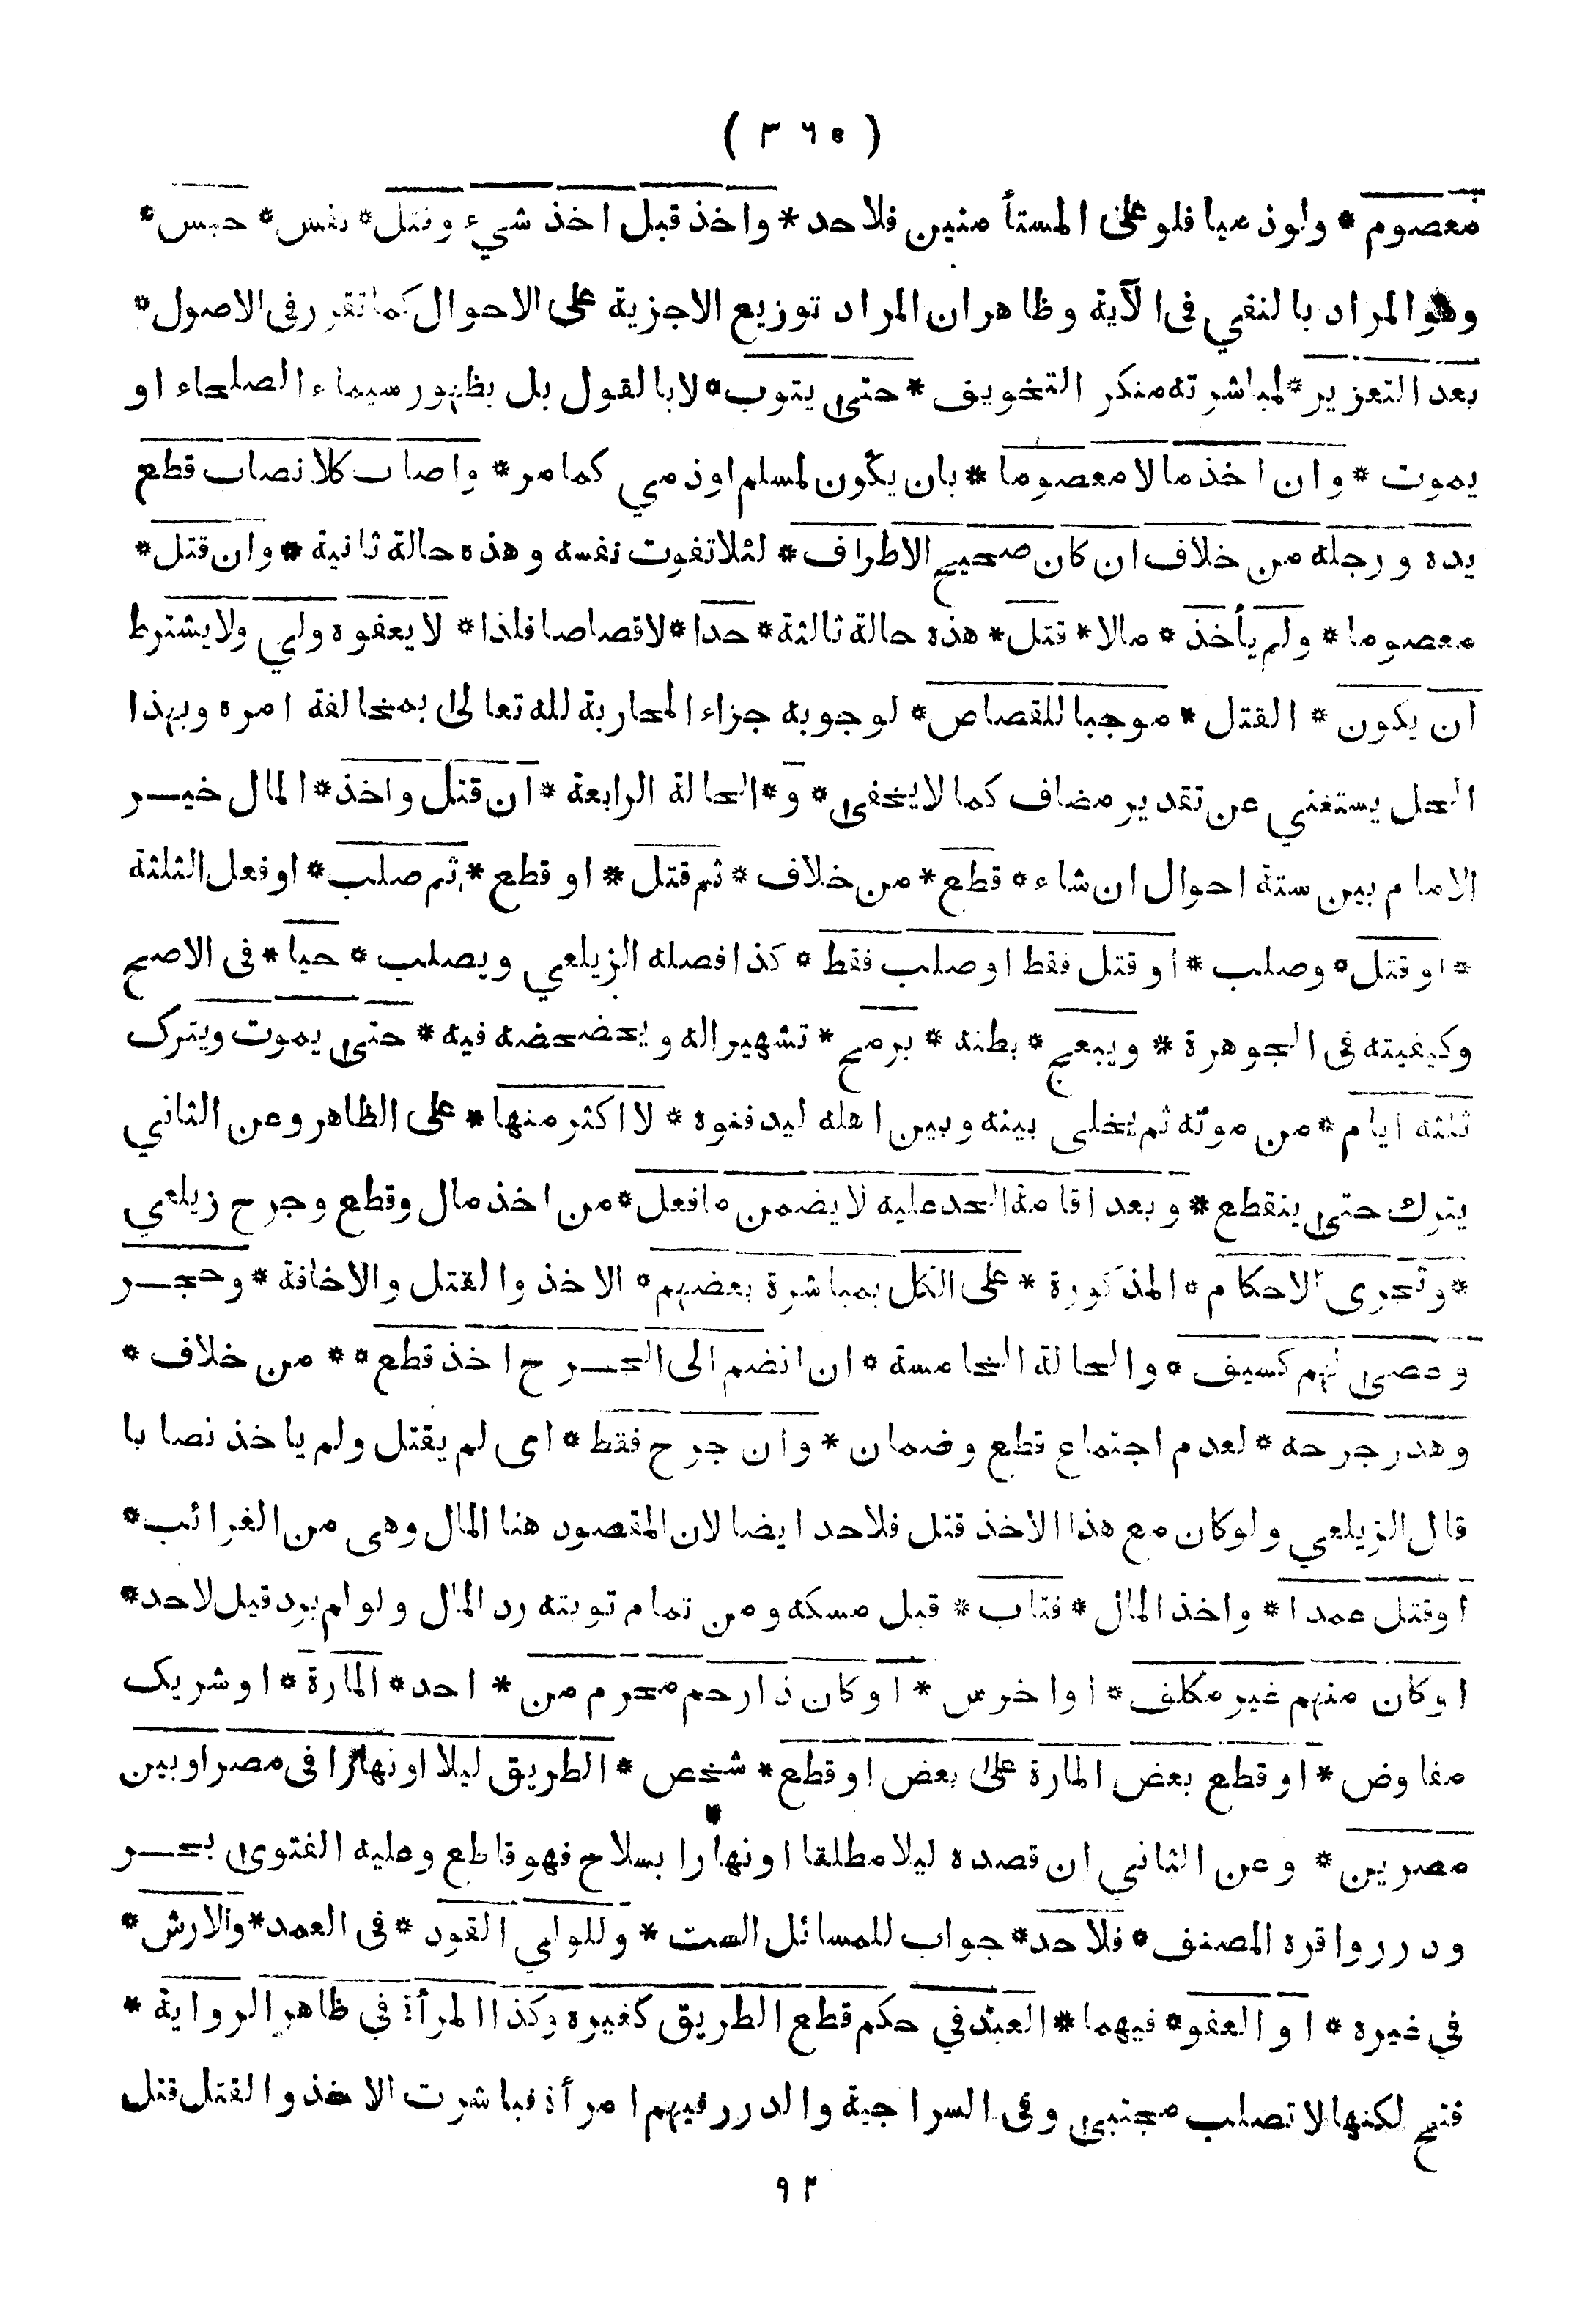 ( ٣٦٥ )
معصوم * ولو ذميا فلو على المستأ منين فلا حد * واخذ قبل اخذ شيء وقتل * نفس * حبس *
وهو المراد بالنفي فى الآية وظاهر ان المراد توزيع الاجزية على الاحوال كما تقرر فى الاصول *
بعد التعزير * لمباشرته منكر التخويف * حتى يتوب * لا بالقول بل بظهور سيماء الصلحاء او
يموت * وان اخذ مالا معصوما * بان يكون لمسلم او ذمي كما مر * واصاب كلا نصاب قطع
يده ورجله من خلاف ان كان صحيح الاطراف * لئلا تفوت نفسه وهذه حالة ثانية * وان قتل *
معصوما * ولم يأخذ * مالا * قتل * هذه حالة ثالثة * حدا * لا قصاصا فلذا * لا يعفوه ولي ولا يشترط
ان يكون * القتل * موجبا للقصاص * لوجوبه جزاء المحاربة لله تعالى بمخالفة امره وبهذا
الحل يستغني عن تقدير مضاف كما لا يخفى * و * الحالة الرابعة * ان قتل واخذ * المال خيـر
الامام بين ستة احوال ان شاء * قطع * من خلاف * ثم قتل * او قطع * ثم صلب * او فعل الثلثة
* او قتل * وصلب * او قتل فقط او صلب فقط * كذا فصله الزيلعي ويصلب * حيا * فى الاصح
وكيفيته فى الجوهرة * ويبعج * بطنه * برمح * تشهيرا له ويخضخضه فيه * حتى يموت ويترك
ثلثة ايام * من موته ثم يخلى بينه وبين اهله ليدفنوه * لا اكثر منها * على الظاهر وعن الثاني
يترك حتى ينقطع * وبعد اقامة الحد عليه لا يضمن ما فعل * من اخذ مال وقطع وجرح زيلعي
* وتجرى الاحكام * المذكورة * على الكل بمباشرة بعضهم * الاخذ والقتل والاخافة * وحجـر
وعصى لهم كسيف * والحالة الخامسة * ان انضم الى الجـرح اخذ قطع * * من خلاف *
وهدر جرحه * لعدم اجتماع قطع وضمان * وان جرح فقط * اى لم يقتل ولم ياخذ نصابا
قال الزيلعي ولو كان مع هذا الاخذ قتل فلا حد ايضا لان المقصود هنا المال وهى من الغرائب *
او قتل عمدا * واخذ المال * فتاب * قبل مسكه ومن تمام توبته رد المال ولو لم يرد قيل لا حد *
او كان منهم غير مكلف * او اخرس * او كان ذا رحم محرم من * احد * المارة * او شريك
مفاوض * او قطع بعض المارة على بعض او قطع * شخص * الطريق ليلا او نهارا فى مصر او بين
مصرين * وعن الثاني ان قصده ليلا مطلقا او نهارا بسلاح فهو قاطع وعليه الفتوى بحـر
ودرر واقره المصنف * فلا حد * جواب للمسائل الست * وللولي القود * فى العمد * والارش *
في غيره * او العفو * فيهما * العبد في حكم قطع الطريق كغيره وكذا المرأة في ظاهر الرواية *
فتح لكنها لا تصلب مجتبى وفى السراجية والدرر فيهم امرأة فباشرت الاخذ والقتل قتل
٩٢